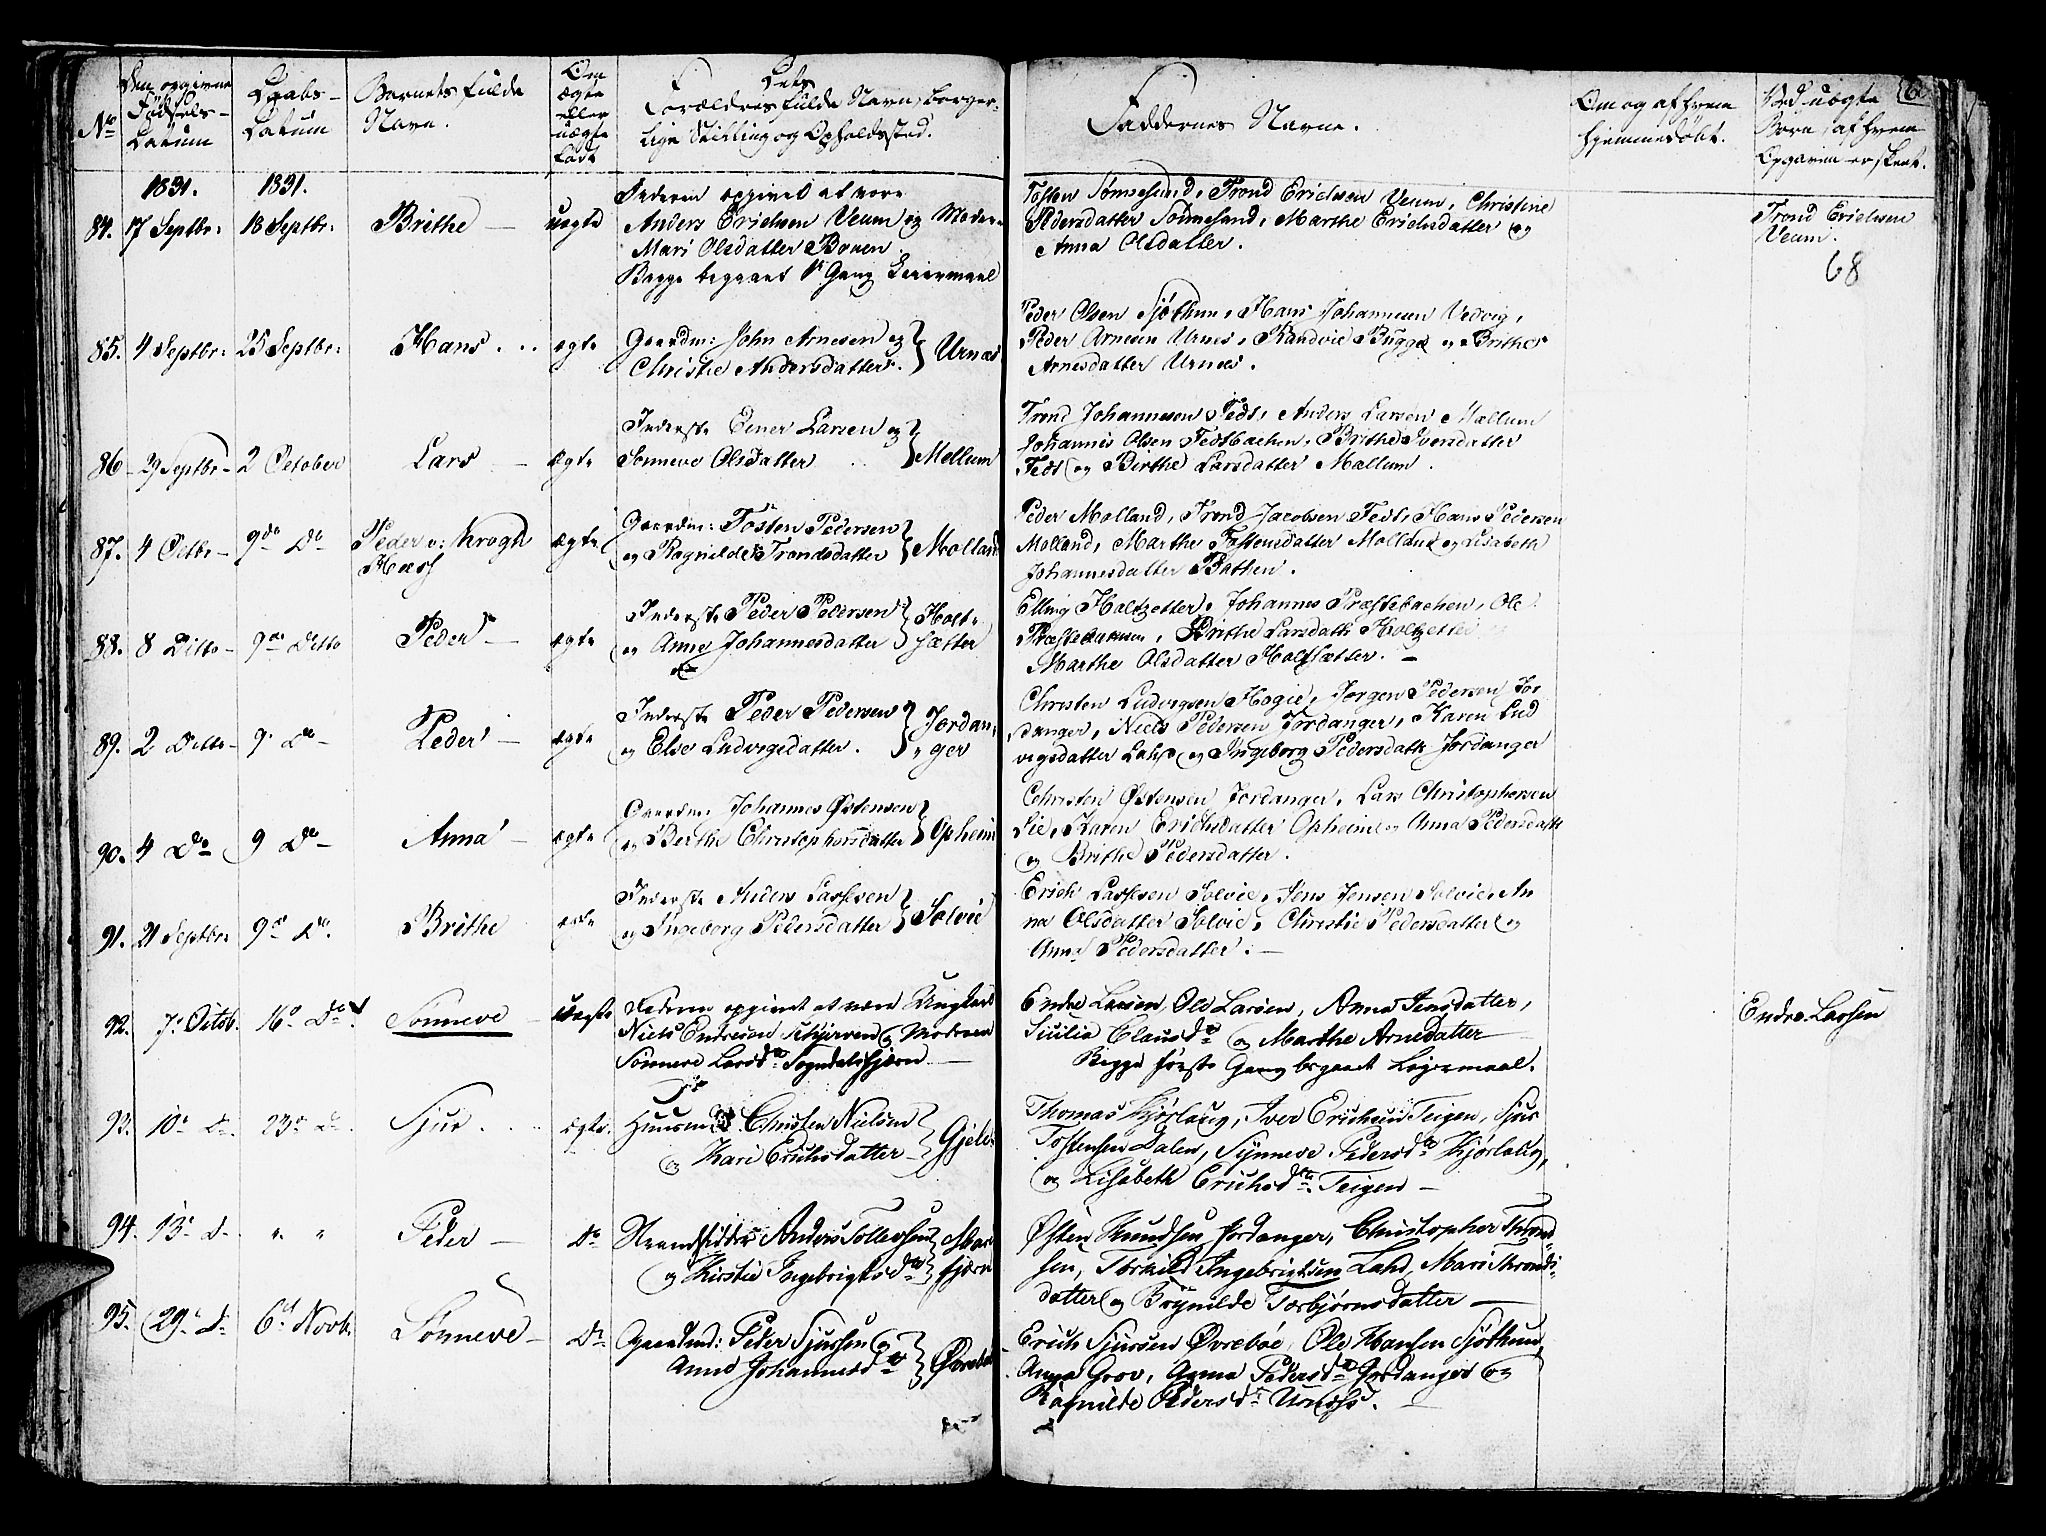 No
Den opgivne
Fødsels-
Datum
Daabs-
Datum
Barnets fulde
Navn.
Om
ægte
eller
uægte
født
Dets
Forældres fulde Navn, borger-
lige Stilling og Opholdssted.
Faddernes Navne.
Om og af hvem
hjemmedøbt.
Ved uægte
Børn, af hvem
Opgaven er skeet.
68
1831. 1831.
84. 17 Septbr: 18 Septbr: Brithe — uægte
Faderen opgivet at være
Anders Erichsen Veum og Moder
Mari Olsdatter Bauen
Begge begaaet 1ste Gang Leiermaal
Tosten Sømnesand, Trond Erichsen Veum, Christine
Pedersdatter Sømnesand, Marthe Erichsdatter og
Anna Olsdatter.
Trond Erichsen
Veum.
85. 4 Septbr: 25 Septbr: Hans . . . ægte
Gaardm: John Arnesen og
Christie Andersdatter. } Urnæs
Peder Olsen Sjøthun, Hans Johannesen Vedvig,
Peder Arnesen Urnes, Randvie Bugge og Brithe
Arnesdatter Urnes.
86 - 29 Septbr - 2 October Lars — ægte
Inderste Einer Larsen og
Sønneve Olsdatter } Mellum
Trond Johannesen Fedt, Anders Larsen Mællum
Johannis Olsen Fedtbachen, Brithe Iversdatter
Fedt og Birthe Larsdatter Mællum.
87. 4 Octbr - 9de Do Peder v: Krogh
Hess ægte
Gaardm: Tosten Pedersen
og Ragnilde Trondsdatter } Molland
Peder Molland, Trond Jacobsen Fedt, Hans Pedersen
Molland, Marthe Tostensdatter Molland og Lisabeth
Johannesdatter Bathen.
88. 8 Ditto - 9de Ditto Peder — ægte
Inderste Peder Pedersen
og Anne Johannesdatter } Holt-
sætter
Elling Holtzetter, Johannes Præstebachen, Ole
Præstebachen, Brithe Larsdatt: Holtzetter
Marthe Olsdatter Holtsætter. —
89. 2 Ditto - 9. Do - Peder — ægte
Inderste Peder Pedersen
og Else Ludvigsdatter. } Jordan-
ger
Christen Ludvigsen Hogie, Jørgen Pedersen Jor
danger, Niels Pedersen Jordanger, Karen Lud
vigsdatter Lahd og Ingeborg Pedersdatt: Jordanger
90. 4 Do 9 Do - Anna — ægte
Gaardm: Johannes Østensen
og Berthe Christophersdatter } Opheim
Christen Østensen Jordanger, Lars Christophersen
Lie, Karen Erichsdatter Opheim og Anna Pedersdatt
og Brithe Pedersdatter.
91. 21 Septbr: 9de Do. Brithe ægte
Inderste Anders Lassesen
og Ingeborg Pedersdatter } Solvie
Erich Lassesen Solvie, Jens Jensen Solvie, An
na Olsdatter Solvie, Christie Pedersdatter og
Anna Pedersdatter. —
92. 7de Octob. 16de Do Sønneve — uægte
Faderen opgivet at være Ungkarl
Niels Endresen Schjerven og Moderen
Sønneve Larsdtr Sogndalsfjæren —
Endre Larsen, Ole Larsen, Anna Jensdatter,
Sicilia Clausdr og Marthe Arnedatter —
Begge første Gang begaaet Leiermaal.
Endre Larsen
93. 10de Do. 23de Do. Sjur . . . ægte.
Huusmd Christen Nielsen
og Kari Erichsdatter } Gjelle
Thomas Kjørlaug, Iver Erichsen Teigen, Sjur
Tostensen Dalen, Synneve Pedersdr Kjørlaug,
og Lisabeth Erichsdr. Teigen —
94. 13de Do " " Peder — Do
Strandsidder Anders Tollevsen
og Kirstie Ingebrigtsdr } Mar
fjæren
Østen Knudsen Jordanger, Christopher Thrond-
sen, Torkild Ingebrigtsen Lahd, Mari Throndś-
datter og Brynilde Torbjørnsdatter —
95. 29de Do 6te Novb. Sønneve — Do.
Gaardmd: Peder Sjursen og
Anne Johannesdr } Øvrebøe
Erich Sjursen Øvrebøe, Ole Hansen Sjøthun,
Anna Grov, Anna Pedersdr Jordanger og
Ragnilde Pedersdr Urness. —